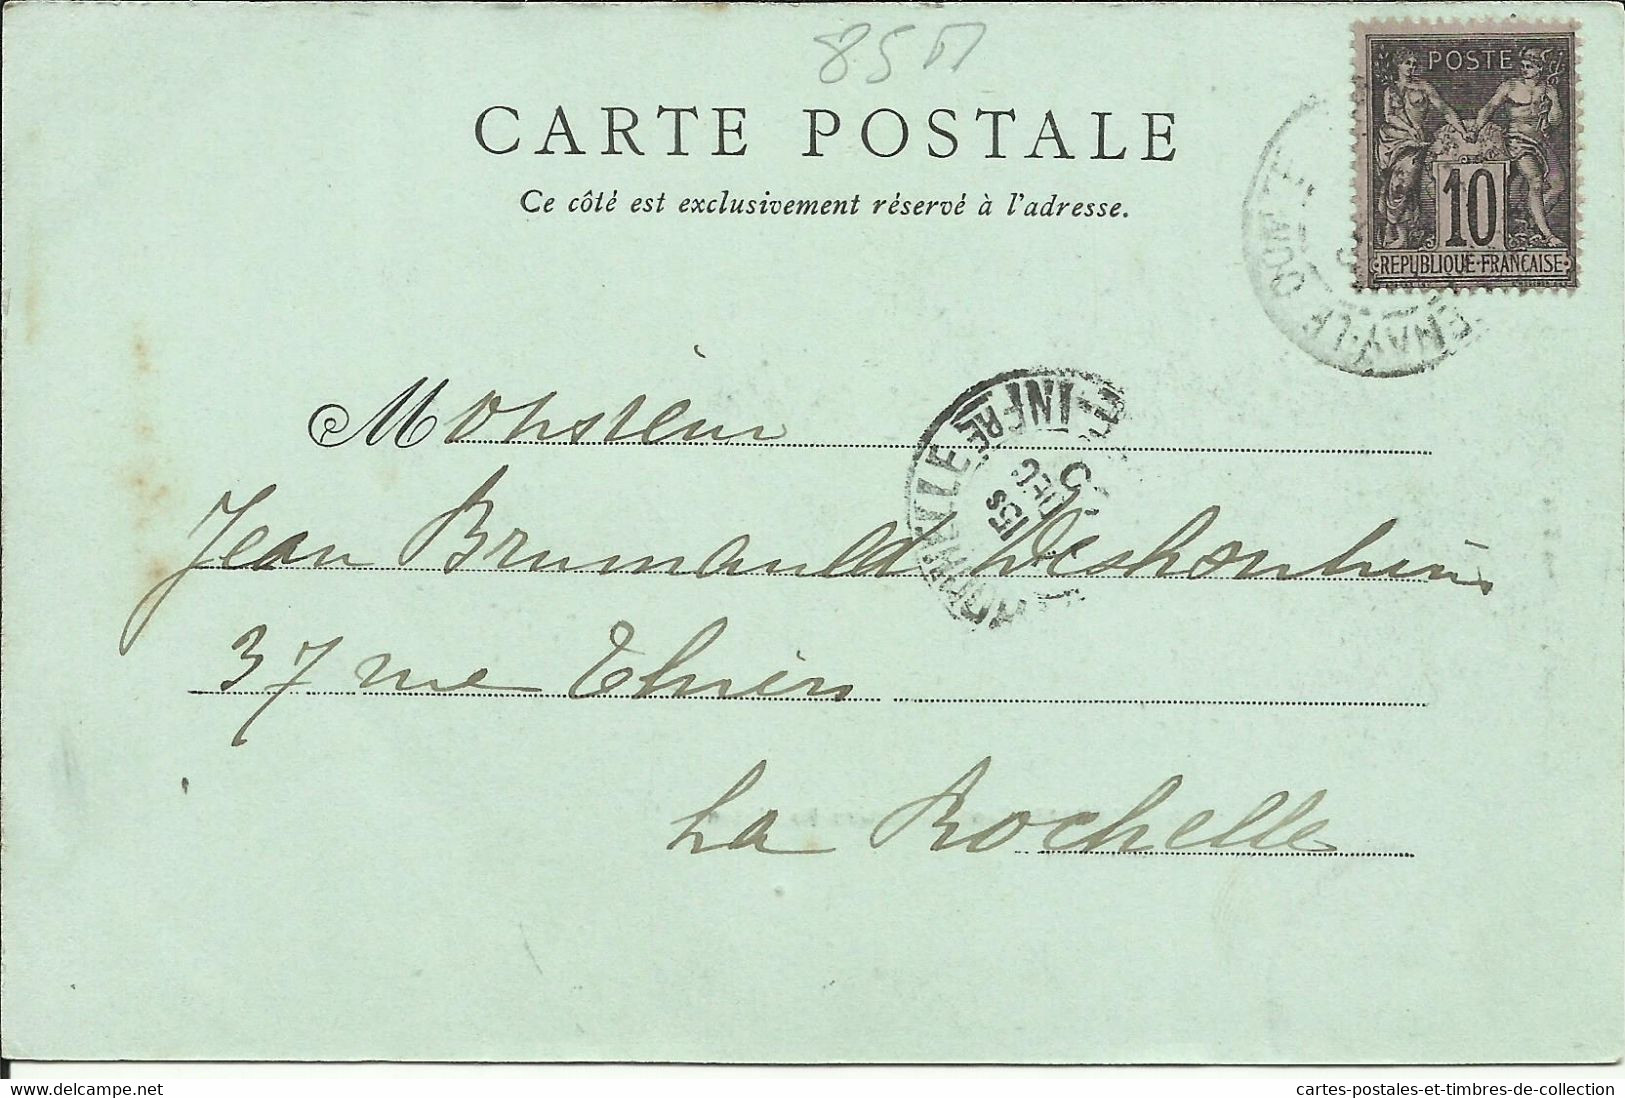 85
CARTE POSTALE
Ce côté est exclusivement réservé à l'adresse.
POSTE
10
REPUBLIQUE FRANCAISE
ENAY-LE
Monsieur
Jean Brumauld Deshoulières
37 rue Thiers
La Rochelle
INFRE
15
DEC
cartes-postales-et-timbres-de-collection
www.delcampe.net